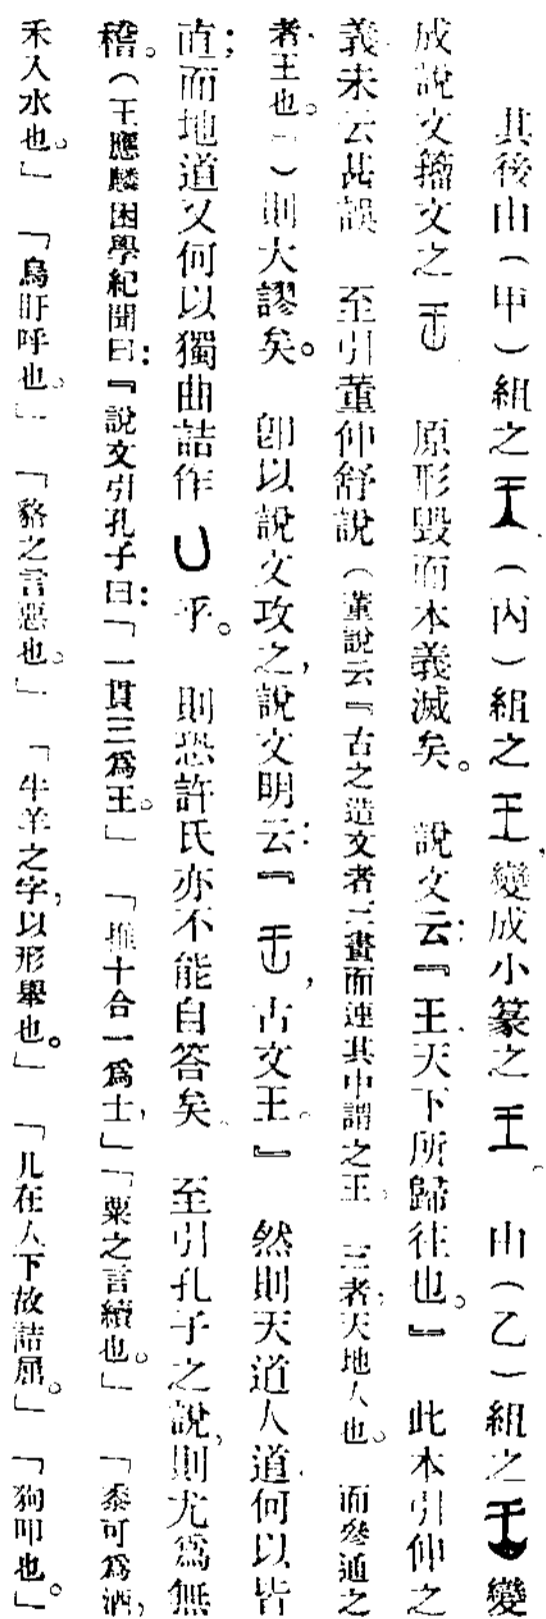 其後由(甲)組之 (丙)組之 變成小篆之 。 由(乙)組之 變
成說文籀文之 原形毀而本義滅矣。 說文云:『王、天下所歸往也。』 此本引伸之
義、未云甚誤 至引董仲舒說(董說云『古之造文者三畫而連其中謂之王。 三者,天地人也。 而參通之
者、王也。』)則大謬矣。 卽以說文攻之,說文明云:『 ,古文王。』 然則天道人道、何以皆
直;而地道又何以獨曲詰作 乎。 則恐許氏亦不能自答矣。 至引孔子之說,則尤爲無
稽。(王應麟困學紀聞曰:『說文引孔子曰:「一貫三爲王。」 「推十合一爲士,」「粟之言續也。」 「黍可爲酒,
禾入水也。」 「烏盱呼也。」 「貉之言惡也。」 「牛羊之字,以形舉也。」 「儿在人下故詰屈。」 「狗叩也。」